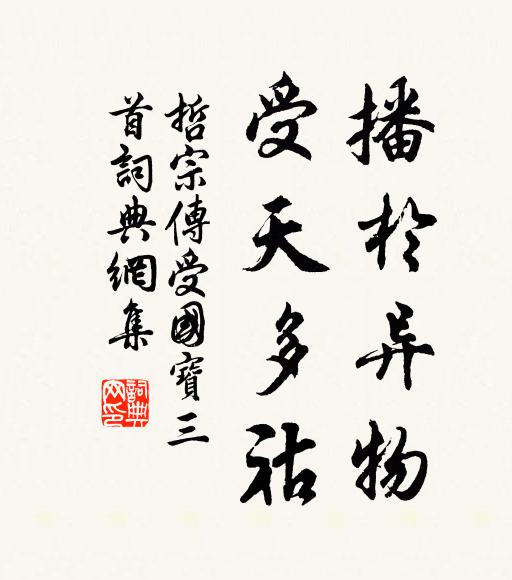 播於异物
受天多祜
哲宗傳受國寶三
首詞典網集
詞典網印